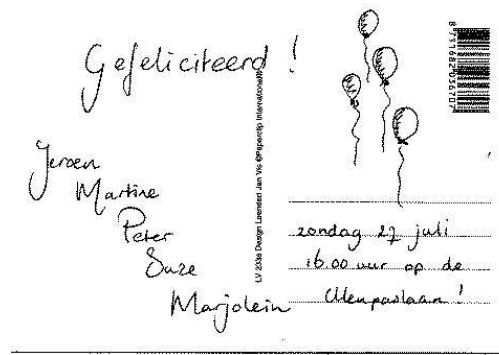 Gefeliciteerd !
Jeroen
Martine
Peter
Suze
Marjolein
LV 233s Design Leendert Jan Vis ©Paperclip International®
8 731682 036707
zondag 27 juli
16.00 uur op de
!